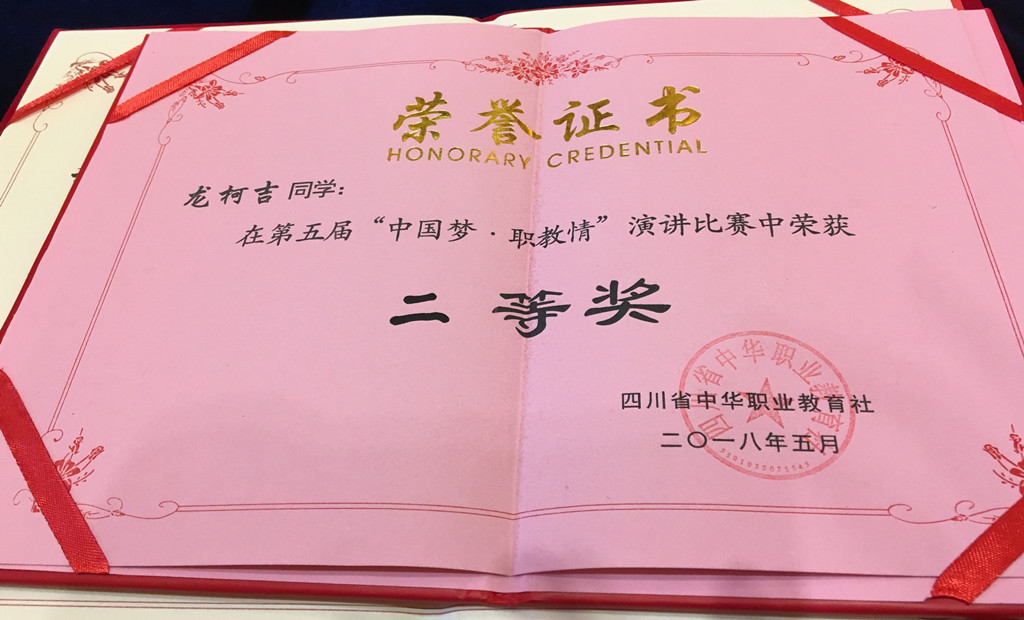 荣誉证书
HONORARY CREDENTIAL
龙柯吉 同学：
在第五届“中国梦·职教情”演讲比赛中荣获
二等奖
四川省中华职业教育社
二〇一八年五月
四川省中华职业教育社